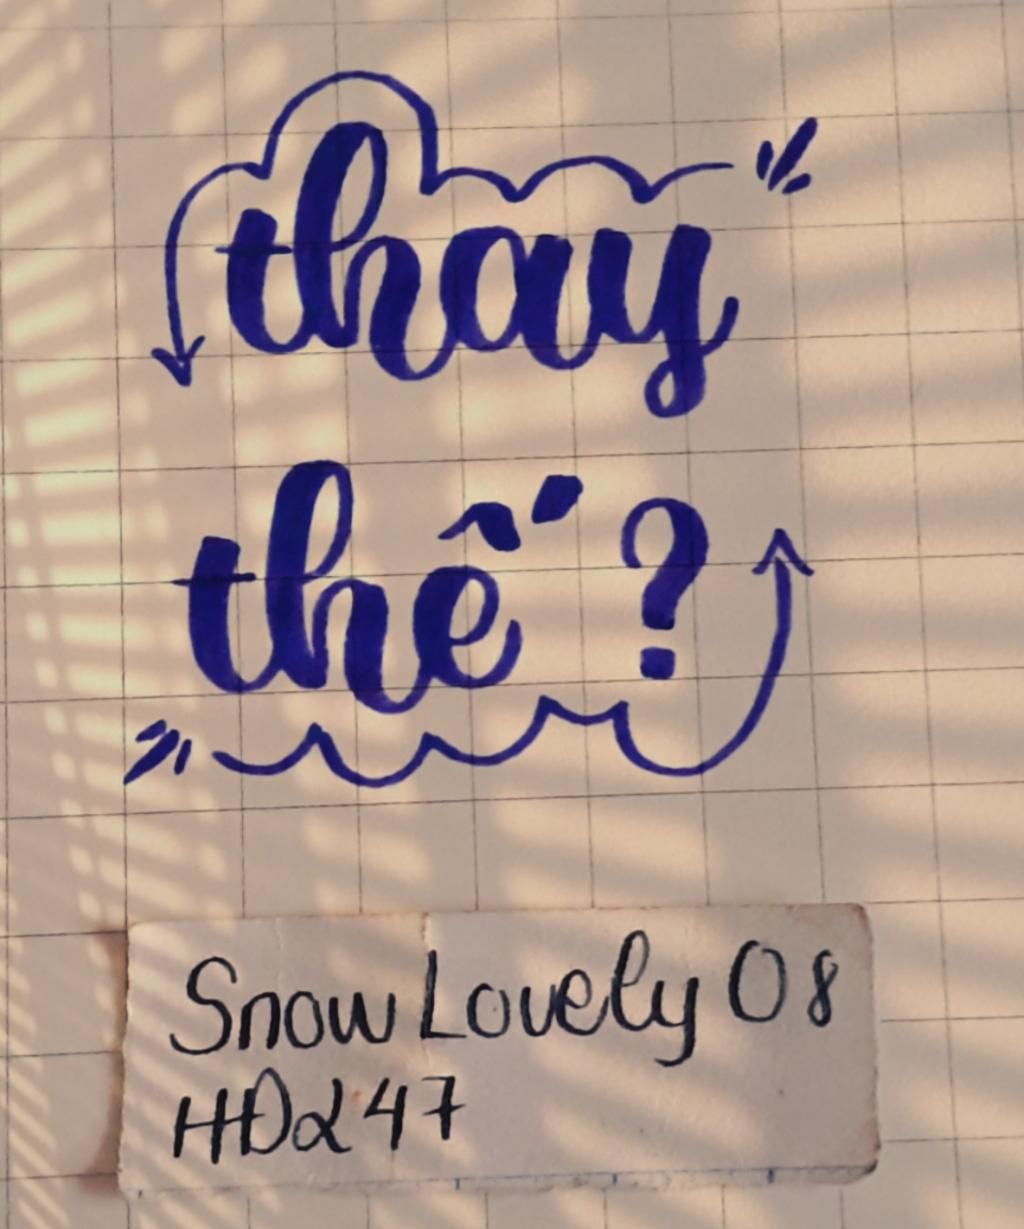 thay
thế ?
Snow Lovely 08
HDα247